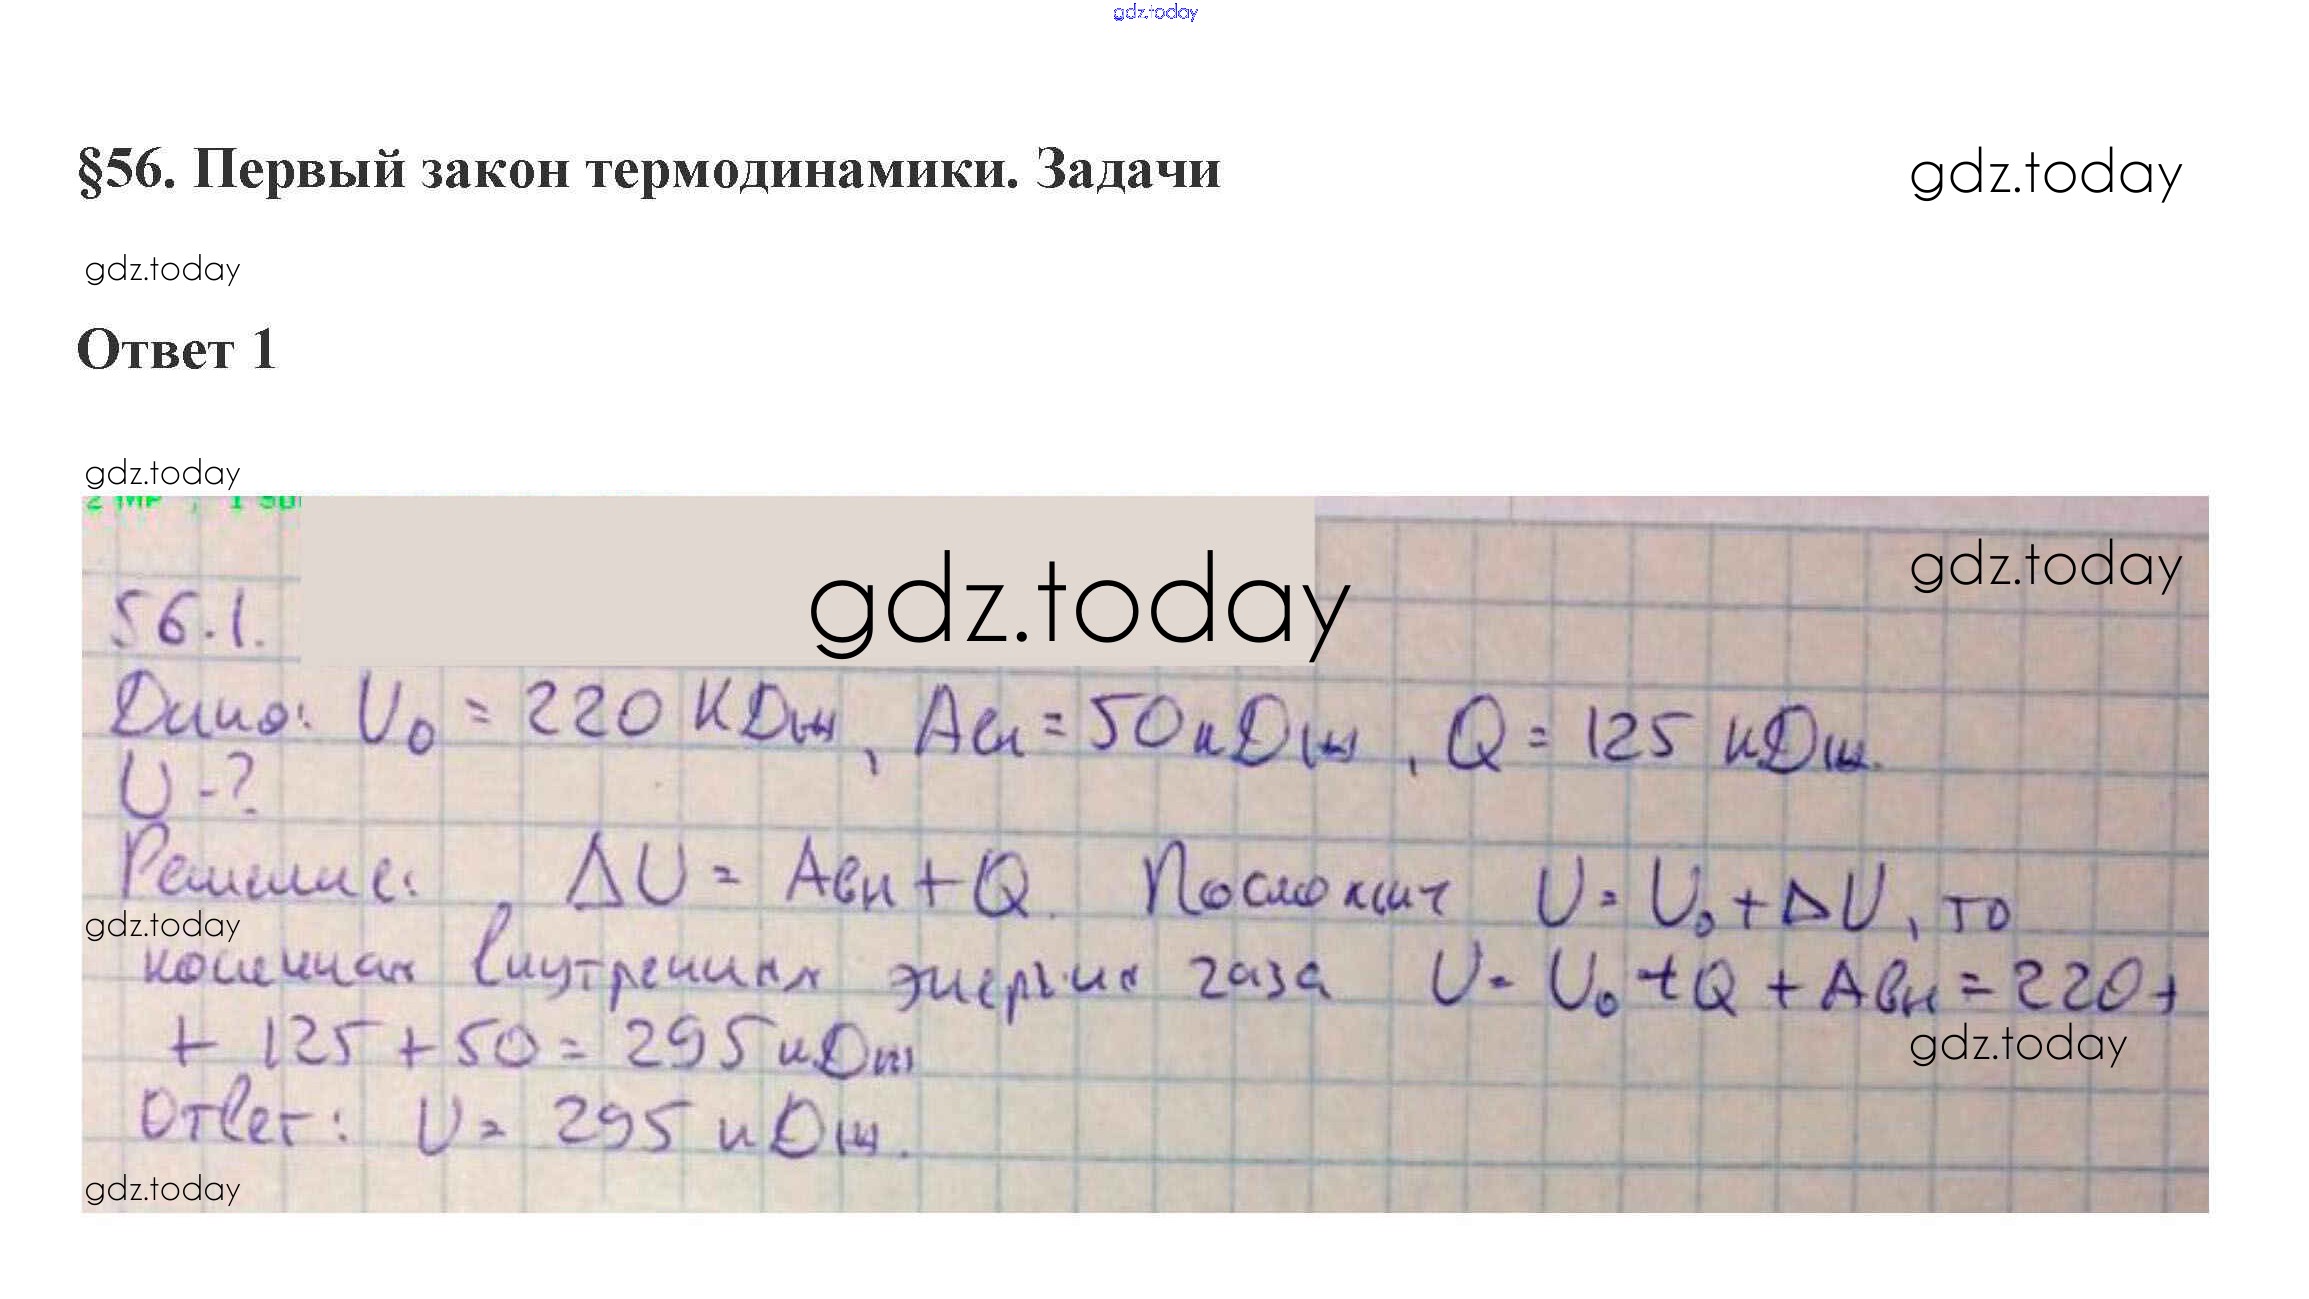 gdz.today
§56. Первый закон термодинамики. Задачи
gdz.today
gdz.today
Ответ 1
gdz.today
gdz.today
gdz.today
56.1.
Дано: U₀ = 220 КДж, Aвн = 50 кДж, Q = 125 кДж.
U - ?
Решение: ΔU = Aвн + Q. Поскольку U = U₀ + ΔU, то
gdz.today
конечная внутренняя энергия газа U = U₀ + Q + Aвн = 220 +
+ 125 + 50 = 295 кДж
gdz.today
Ответ: U = 295 кДж.
gdz.today